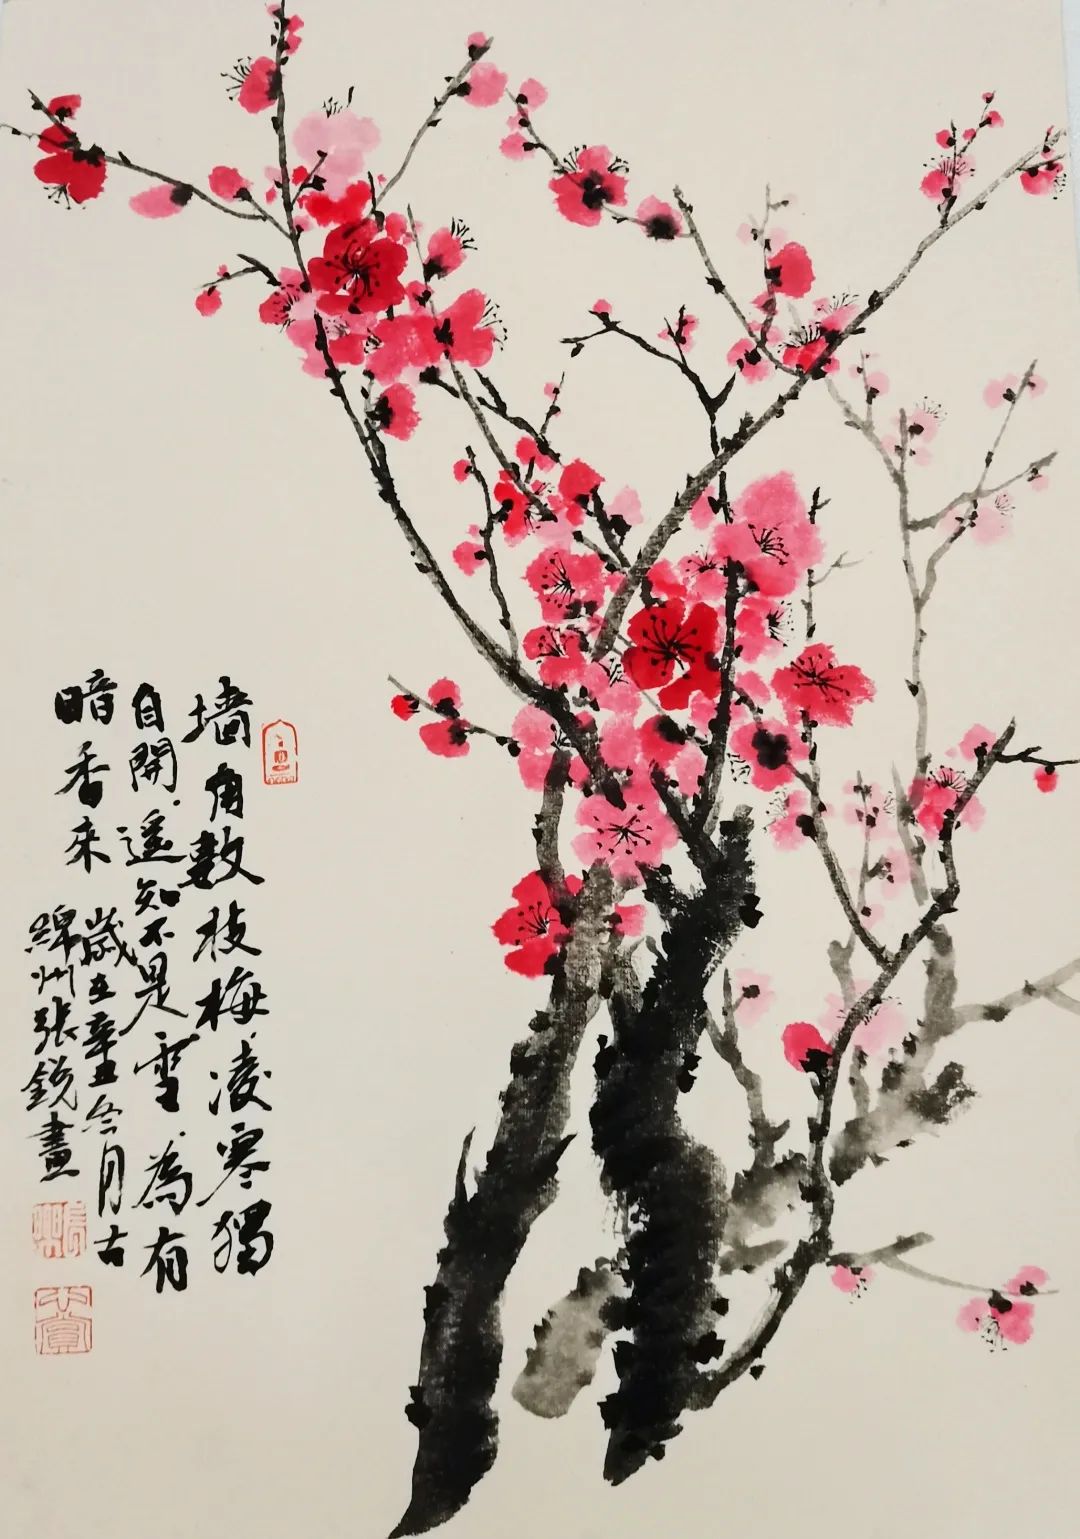 墙角數枝梅凌寒獨
自開遥知不是雪為有
暗香来
歲在辛丑冬月古
綿州張銳畫